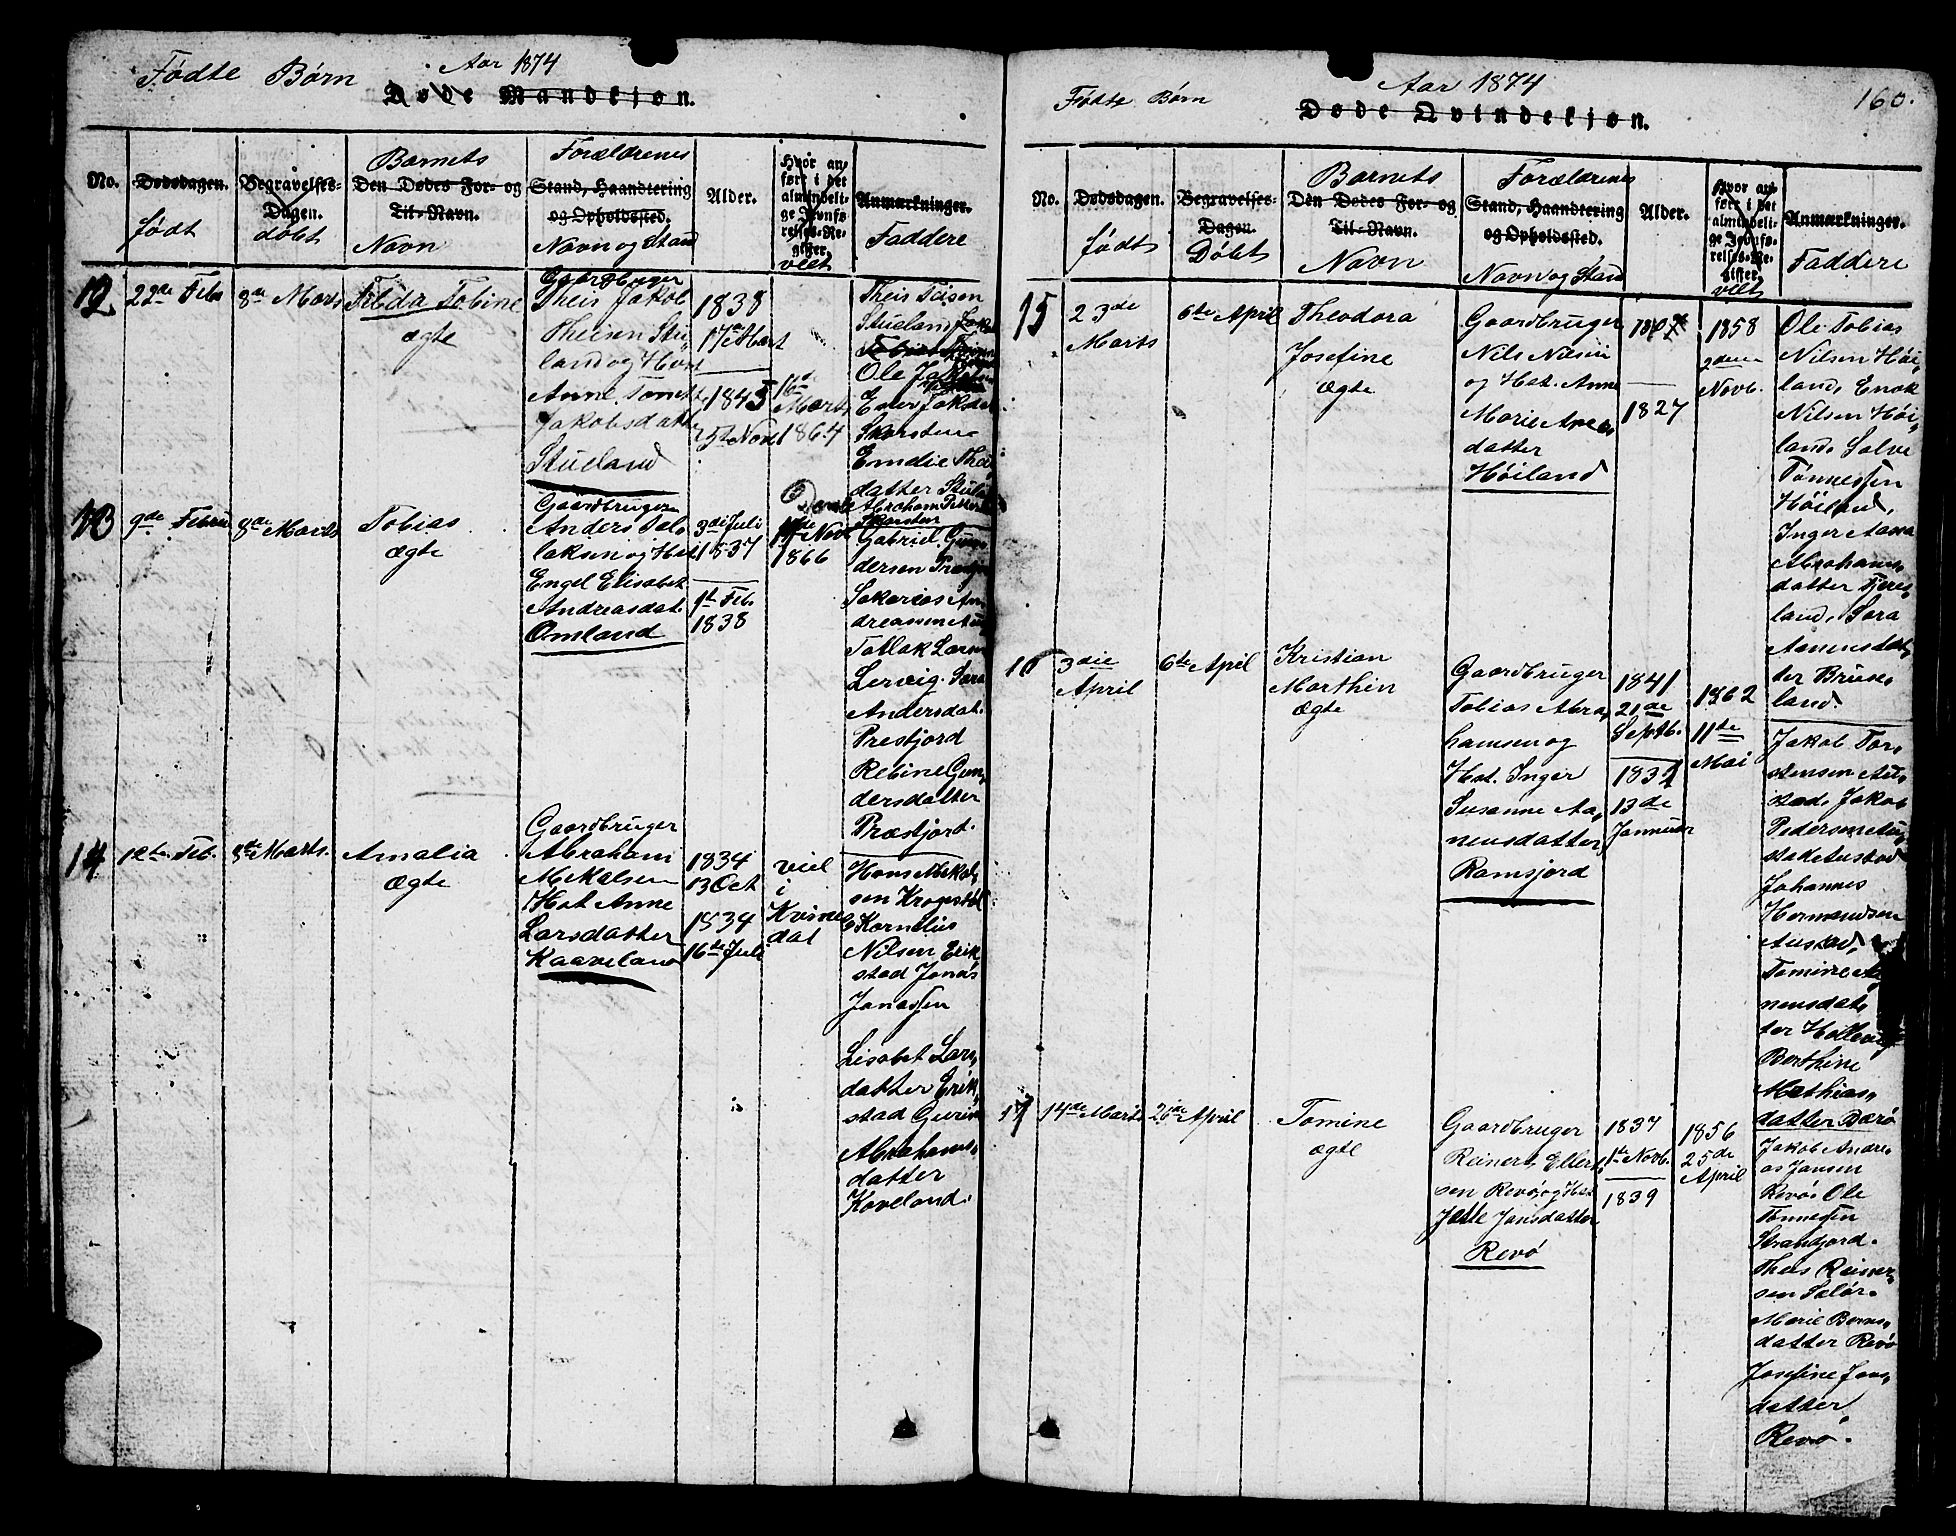 Fødte Børn
Aar 1874
Døde Mandkjøn.
No.
Dødsdagen.
født
Begravelses-
Dagen.
døbt
Barnets
Den Dødes For- og
Til-Navn.
Navn
Forældrenes
Stand, Haandtering
og Opholdssted.
Navn og Stand
Alder.
Hvor an-
ført i det
almindeli-
ge Jevnfø-
relses-Re-
gister.
viet
Anmærkninger.
Faddere
12
22de Feb
8de Marts
Tilda Tobine
ægte
Gaardbruger
Theis Jakob
Theisen Stu-
land og Hust
Anne Tomett
Jakobsdatt
Stueland
1838
17de Mart
1845
25t Nov
16de
Marts
1864
Theis Teisen
Stueland
Ole
Skarstein
Emelie Theis
datter Stul
13
9de Febru
8de Marts
Tobias
ægte
Gaardbruger
Anders Sal-
laksen og Hst
Engel Elisabet
Andreasdat.
Omland
3die Juli
1837
9de Feb.
1838
Nov
1866
Abraham Peder
Skarstein
Gabriel Gun-
dersen
Sakarias An-
Tollak Larsen
Lervig. Sara
Andersdat.
Prestjord
Rebine Gun-
dersdatter
Præstjord.
14
12te Feb.
8de Marts.
Amalia
ægte
Gaardbruger
Abraham
Mekalsen
Hst Anne
Larsdatter
Kaaveland
1834
13 Oct
1834
16de Juli
viel
i
Kvines
dal
Hans Mekal-
sen
Kornelius
Nilsen Erik-
stad Jonas
Jonassen
Lisabet Lars-
datter Erik-
stad Gurine
Abrahams-
datter
Koveland.
Fødte Børn
Aar 1874
160.
Døde Qvindekjøn.
No.
Dødsdagen.
født
Begravelses-
Dagen.
Døbt
Barnets
Den Dødes For- og
Til-Navn.
Navn
Forældrenes
Stand, Haandtering
og Opholdssted.
Navn og Stand
Alder.
Hvor an-
ført i det
almindeli-
ge Jevnfø-
relses-Re-
gister.
viet
Anmærkninger.
Faddere
15
23de
Marts
6te April
Theodora
Josefine
Ægte
Gaardbruger
Nils Nilsen
og Hst. Anne
Marie
datter
Høiland
1827
1858
2den
Novb.
Ole Tobias
Nilsen Høi-
land, Enok
Nilsen Høi-
land, Salve
Tønnessen
Høiland,
Inger Aasa
Abrahams-
datter Fjere-
land, Sara
Aanensdat-
ter Bruse-
land.
16
3die
April
6te April
Kristian
Marthin
ægte
Gaardbruger
Tobias Abra-
hamsen og
Hst. Inger
Susanne Aa-
nensdatter
Ramsjord
1841
21de
Septb.
1832
13de
Januar
1862
11te
Mai
Jakob Tor-
stensen Au-
stad, Jakob
Pedersen
Austad
Johannes
Hermandsen
Austad,
Tomine Aa-
nensdat-
ter
Berthine
Mathias-
datter Bærø
17
14de Marts
26de April
Tomine
ægte
Gaardbruger
Reinert Ellert-
sen Revø, og Hst
Jelle Jansdatter
Revø
1837
1te Novb.
1839
1856
25de
April
Jakob Andre-
as Jansen
Revø. Ole
Tønnesen
Strandjord.
Theis Reiner-
sen Salør.
Marie Berns-
datter Revø
Josefine Jans-
datter
Revø.